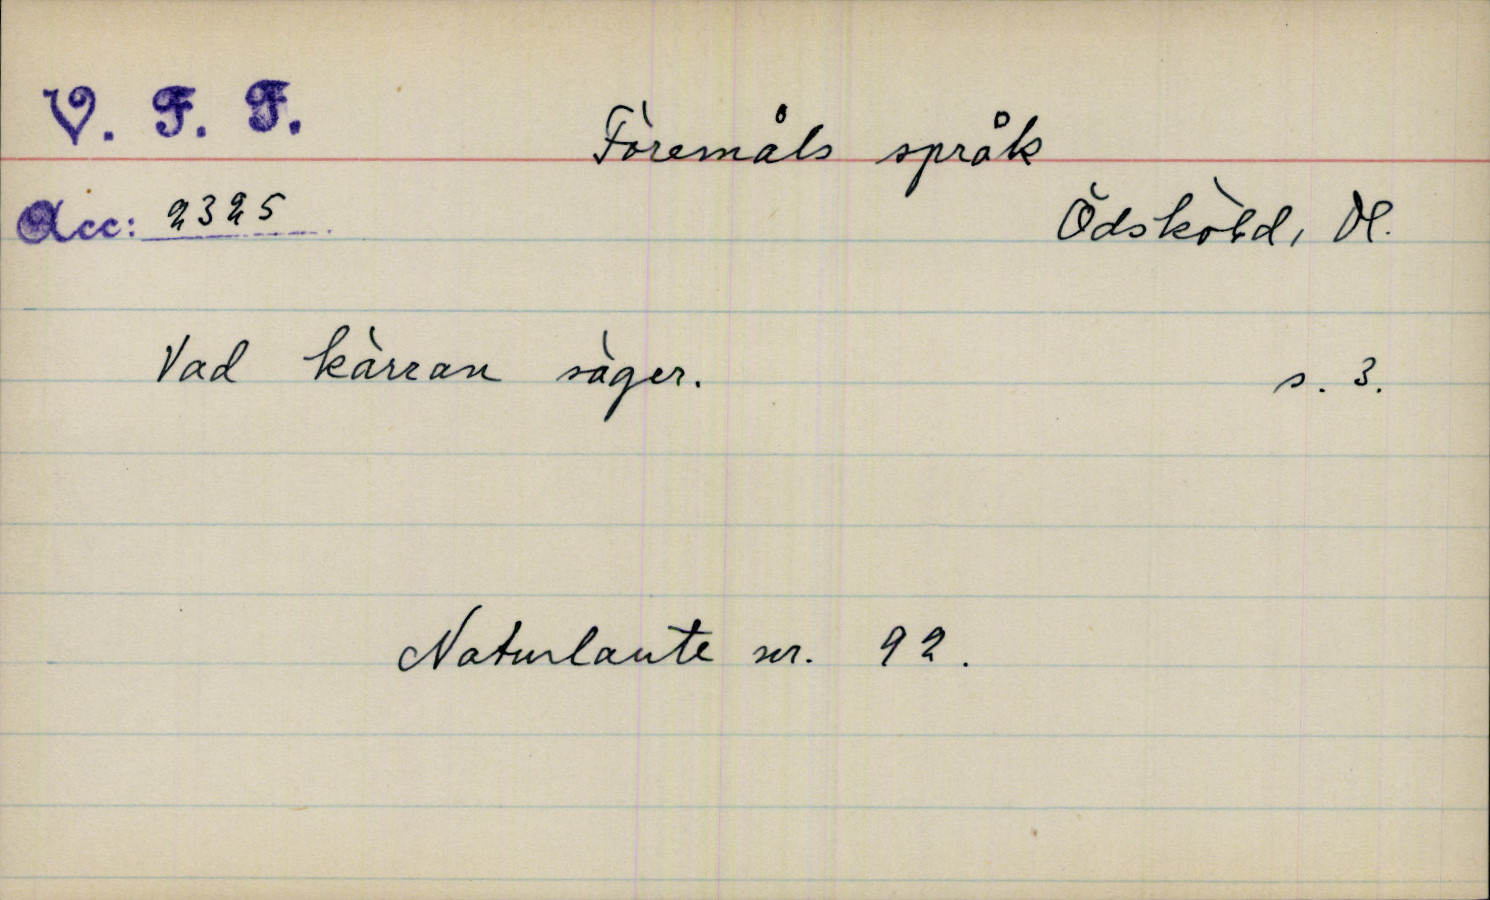 V. F. F.
Föremåls språk
Acc: 2325
Ödsköld, Dl.
Vad kärran säger. s. 3.
Naturlaute nr. 92.